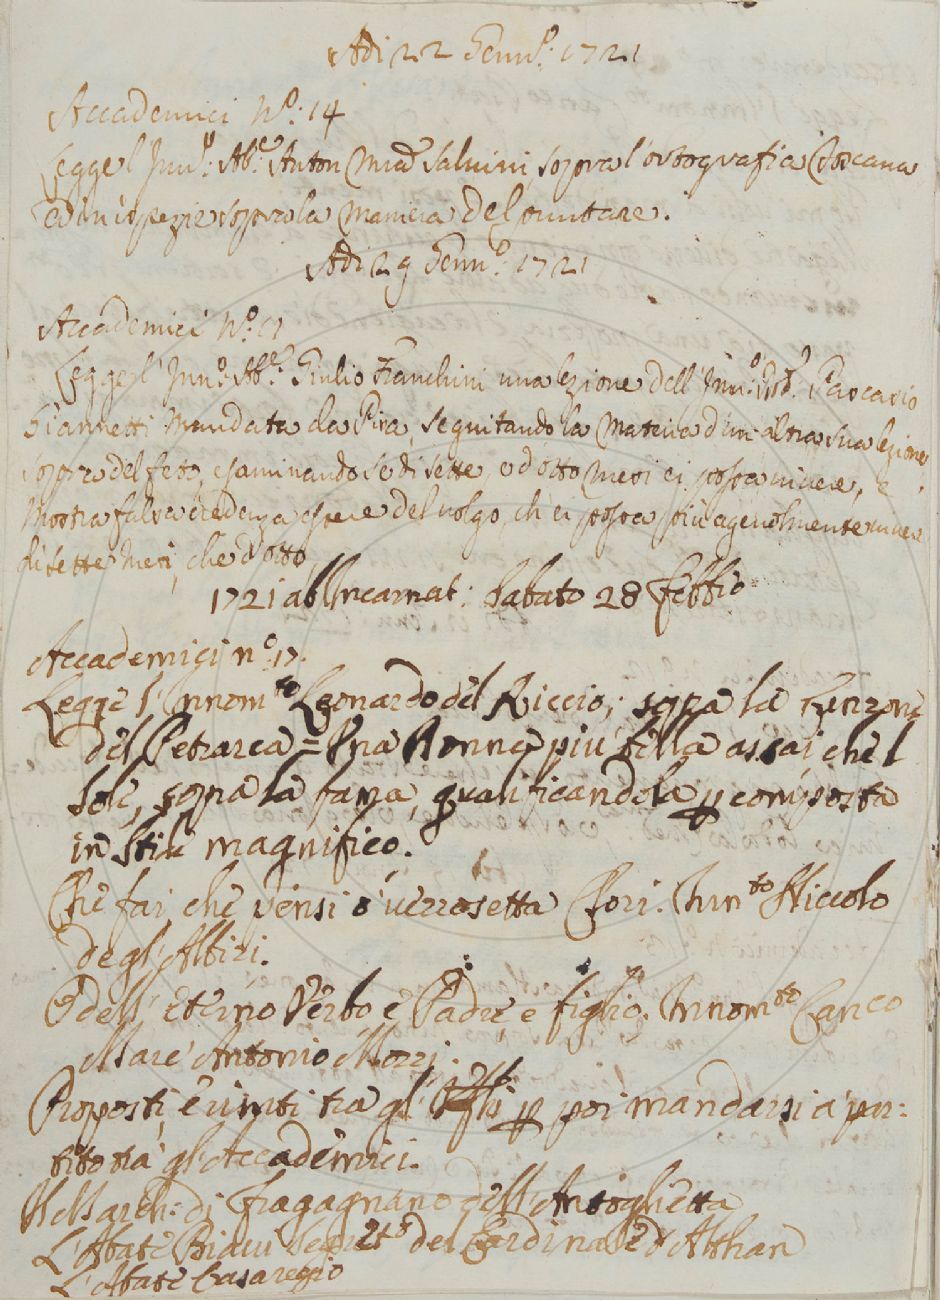 Adi 22 Genn.o 1721
Accademici N.o 14
Legge l'Inn.o Ab.e Anton M.a Salvini sopra l'ortografia Toscana
ed in ispezie sopra la maniera del puntare.
Adi 29 Genn.o 1721
Accademici N.o 11
Legge l'Inn.o Ab.e Giulio Franchini una lezione dell'Inn.o Procacio
Giannetti mandata da Pisa, seguitando la materia d'un'altra sua lezione
sopra del feto, esaminando se di sette, o d'otto mesi ei possa vivere, e
mostra falsa credenza essere del volgo, ch'ei possa più agevolmente vivere
di sette mesi, che d'otto,
1721 ab Incarnat: Sabato 28 Febb.io
Accademici n.o 17.
Legge l'Innom.to Leonardo del Riccio, sopra la Canzone
del Petrarca = Una Donna più bella assai che l
sole, sopra la fama, qualificandola p composta
in stile magnifico.
Che fai che pensi o verzosetta Clori. Inn.to Niccolo
degl'Albizi.
O dell'Eterno Verbo e Padre e figlio. Innom.to Canco
Marc'Antonio Mozzi.
Proposti, e vinti tra gl' p poi mandarsi a par:
tito tra gl'Accademici.
Il March: di Fragagnano dell'Antoglietta
L'Abate Biavi Segret.o del Cardinale d'Althan
L'Abate Casareggio